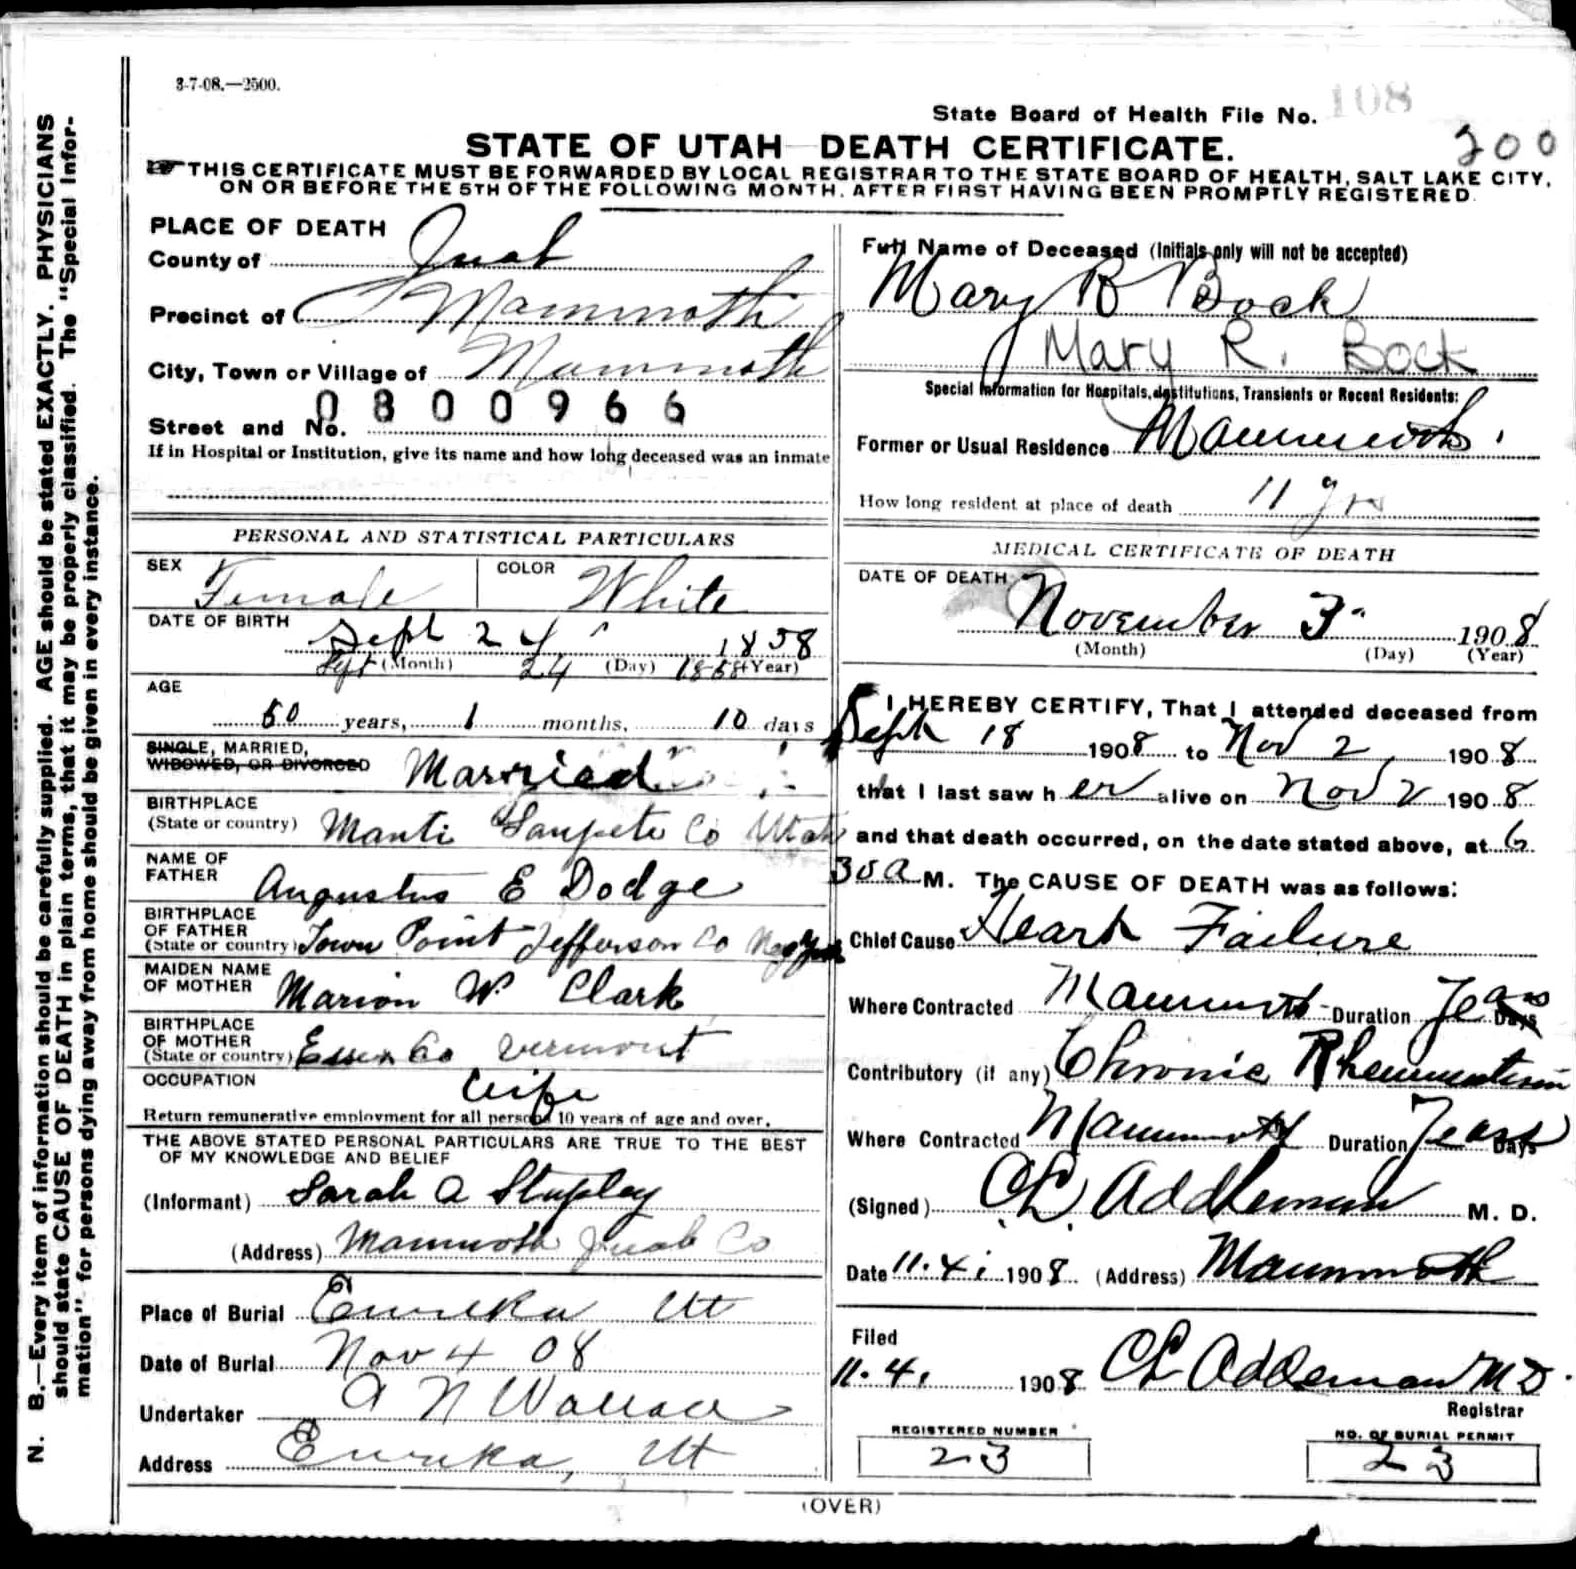 3-7-08.—2500.
State Board of Health File No. 108
200
STATE OF UTAH DEATH CERTIFICATE.
THIS CERTIFICATE MUST BE FORWARDED BY LOCAL REGISTRAR TO THE STATE BOARD OF HEALTH, SALT LAKE CITY,
ON OR BEFORE THE 5TH OF THE FOLLOWING MONTH, AFTER FIRST HAVING BEEN PROMPTLY REGISTERED
N. B.—Every item of information should be carefully supplied. AGE should be stated EXACTLY. PHYSICIANS
should state CAUSE OF DEATH in plain terms, that it may be properly classified. The "Special Infor-
mation" for persons dying away from home should be given in every instance.
PLACE OF DEATH
County of Juab
Precinct of Mammoth
City, Town or Village of Mammoth
0800966
Street and No.
If in Hospital or Institution, give its name and how long deceased was an inmate
PERSONAL AND STATISTICAL PARTICULARS
SEX Female COLOR White
DATE OF BIRTH
Sept 24 1858
Sept (Month) 24 (Day) 1858 (Year)
AGE
50 years, 1 months, 10 days
SINGLE, MARRIED,
WIDOWED, OR DIVORCED Married
BIRTHPLACE
(State or country) Manti Sanpete Co Utah
NAME OF
FATHER Augustus E Dodge
BIRTHPLACE
OF FATHER
(State or country) Town Point Jefferson Co
MAIDEN NAME
OF MOTHER Marion W Clark
BIRTHPLACE
OF MOTHER
(State or country) Essex Co Vermont
OCCUPATION Wife
Return remunerative employment for all persons 10 years of age and over.
THE ABOVE STATED PERSONAL PARTICULARS ARE TRUE TO THE BEST
OF MY KNOWLEDGE AND BELIEF
(Informant) Sarah A
(Address) Mammoth Juab Co
Place of Burial Eureka Ut
Date of Burial Nov 4 08
Undertaker A N Wallace
Address Eureka, Ut
Full Name of Deceased (Initials only will not be accepted)
Mary R Bock
Mary R. Bock
Special Information for Hospitals, Institutions, Transients or Recent Residents:
Former or Usual Residence Mammoth
How long resident at place of death 11 yrs
MEDICAL CERTIFICATE OF DEATH
DATE OF DEATH
November 3 1908
(Month) (Day) (Year)
I HEREBY CERTIFY, That I attended deceased from
Sept 18 1908 to Nov 2 1908
that I last saw her alive on Nov 2 1908
and that death occurred, on the date stated above, at 6
30 A M. The CAUSE OF DEATH was as follows:
Chief Cause Heart Failure
Where Contracted Mammoth Duration Years Days
Contributory (if any) Chronic Rheumatism
Where Contracted Mammoth Duration Years Days
(Signed) CL Addleman M. D.
Date 11. 4. 1908 (Address) Mammoth
Filed
11. 4. 1908 CL Addleman MD.
Registrar
REGISTERED NUMBER
23
NO. OF BURIAL PERMIT
23
(OVER)